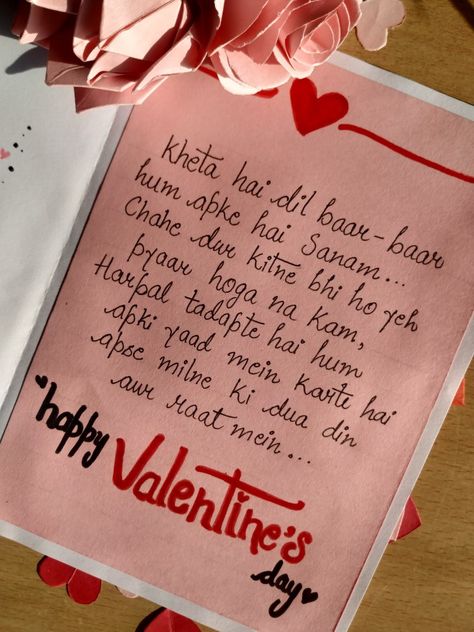 Kheta hai dil baar-baar
hum apke hai Sanam...
Chahe dur kitne bhi ho yeh
pyaar hoga na kam,
Harpal tadapte hai hum
apki yaad mein karte hai
apse milne ki dua din
aur raat mein...
happy
Valentine's
day